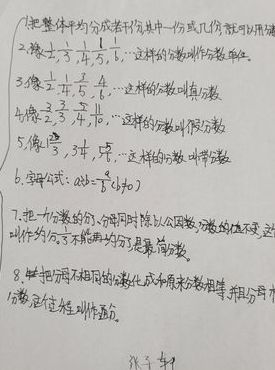 1.把整体平均分成若干份,其中一份或几份就可以用分
2.像1/2,1/3,1/4,1/5,1/6,…这样的分数叫作分数单位。
3.像1/2,1/4,3/5,4/6,…这样的分数叫真分数
4.像2/2,3/3,5/4,11/10,…这样的分数叫假分数
5.像 ,3 1/4, ,…这样的分数叫带分数
6.字母公式:a÷b=a/b(b≠0)
7.把一个分数的分子、分母同时除以公因数,分数的值不变,这
叫作约分。1/3不能再约分了是最简分数。
8.把分母不相同的分数化成和原来分数相等,并且分母
分数,这个过程叫作通分。
张子轩